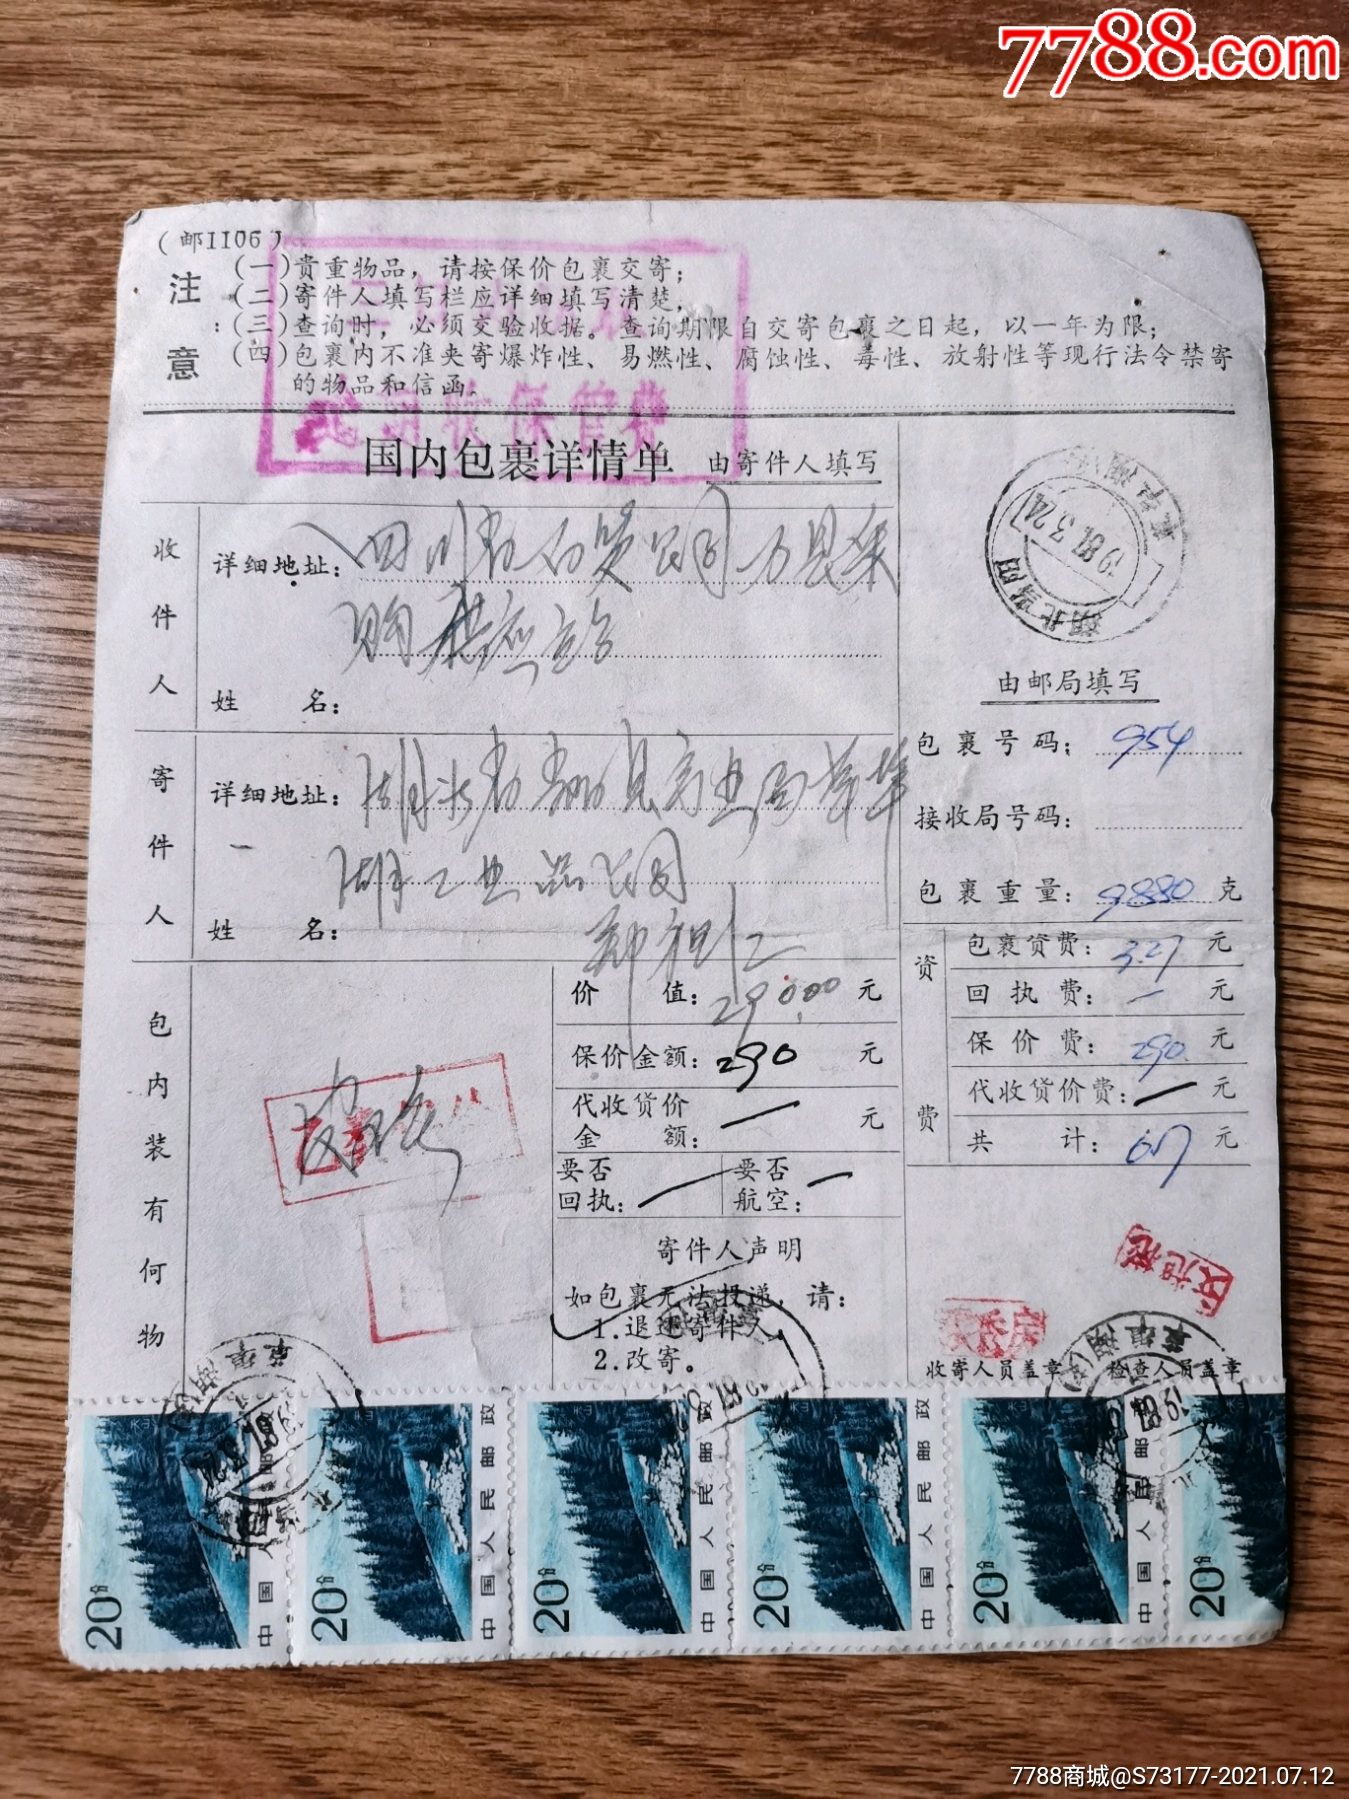 7788.com
(邮1106)
注意:
(一)贵重物品，请按保价包裹交寄；
(二)寄件人填写栏应详细填写清楚，
(三)查询时，必须交验收据。查询期限自交寄包裹之日起，以一年为限；
(四)包裹内不准夹寄爆炸性、易燃性、腐蚀性、毒性、放射性等现行法令禁寄
的物品和信函。
逾期收保管费
国内包裹详情单 由寄件人填写
收件人
详细地址：四川省百货公司万县采
购供应站
姓名：
寄件人
详细地址：湖北省 县商业局草埠
湖工业品公司
姓名：
包内装有何物
价值：290.00元
保价金额：290元
代收贷价金额：一元
要否回执：一 要否航空：一
寄件人声明
如包裹无法投递，请：
1.退还寄件人，
2.改寄。
湖北当阳
1987.3.24
由邮局填写
包裹号码：954
接收局号码：
包裹重量：9880克
资费
包裹贷费：3.27元
回执费：一元
保价费：290元
代收贷价费：一元
共计：6.17元
收寄人员盖章 检查人员盖章
20分 中国人民邮政
20分 中国人民邮政
20分 中国人民邮政
20分 中国人民邮政
20分 中国人民邮政
20分
7788商城@S73177-2021.07.12